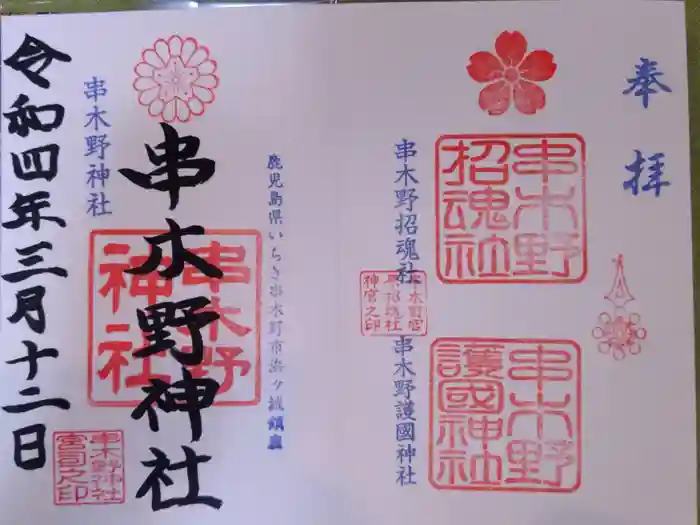 奉拝
串木野招魂社
串木野護國神社
串木野招魂社
串木野護國神社
鹿児島県いちき串木野市浜ヶ城鎮座
串木野神社
串木野神社
串木野神社
令和四年三月十二日
串木野神社宮司之印